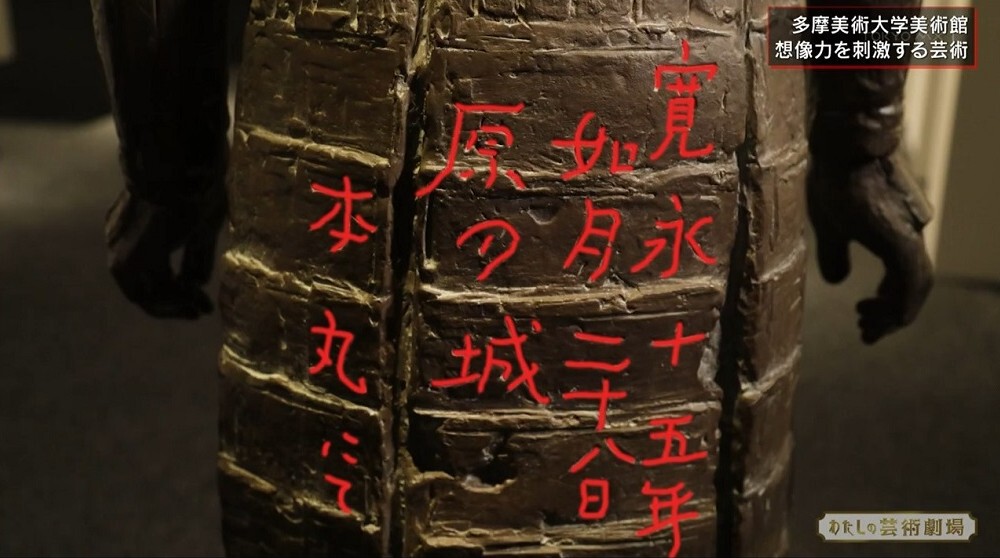 多摩美術大学美術館
想像力を刺激する芸術
寛永十五年
如月二十八日
原の城
本丸にて
わたしの芸術劇場